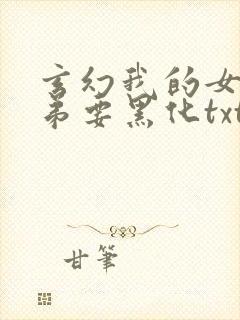 玄幻我的女
弟要黑化txt
甘笔